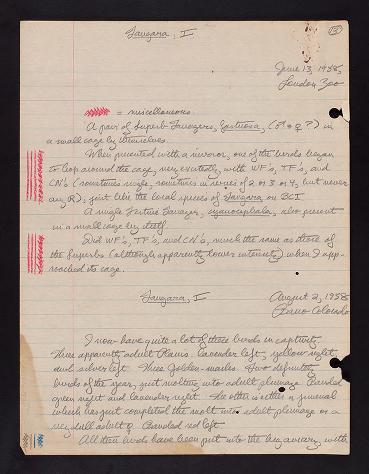 Tangara, I
(13)
June 13, 1958,
London Zoo
= miscellaneous.
A pair of Superb Tanagers, fastuosa, (♂ & ♀ ?) in
a small cage by themselves.
When presented with a mirror, one of the birds began
to hop around the cage, very excitedly, with WF's, TF's, and
CN's (sometimes single, sometimes in series of 2 or 3 or 4, but never
any R), just like the local species of Tangara on BCI
A single Festive Tanager, cyanocephala, also present
in a small cage by itself.
Did WF's, TF's, and CN's, much the same as those of
the Superbs (although apparently lower intensity) when I app-
roached its cage.
Tangara, I
August 2, 1958
Barro Colorado
I now have quite a lot of these birds in captivity.
Three apparently adult Plains. Lavender left, yellow right,
and silver left. Three Golden-masks. Two definitely
birds of the year, just molting into adult plumage. Banded
green right and lavender right. The other is either a juvenal
which has just completed the molt into adult plumage or a
very dull adult ♀. Banded red left.
All these birds have been put into the big aviary, with